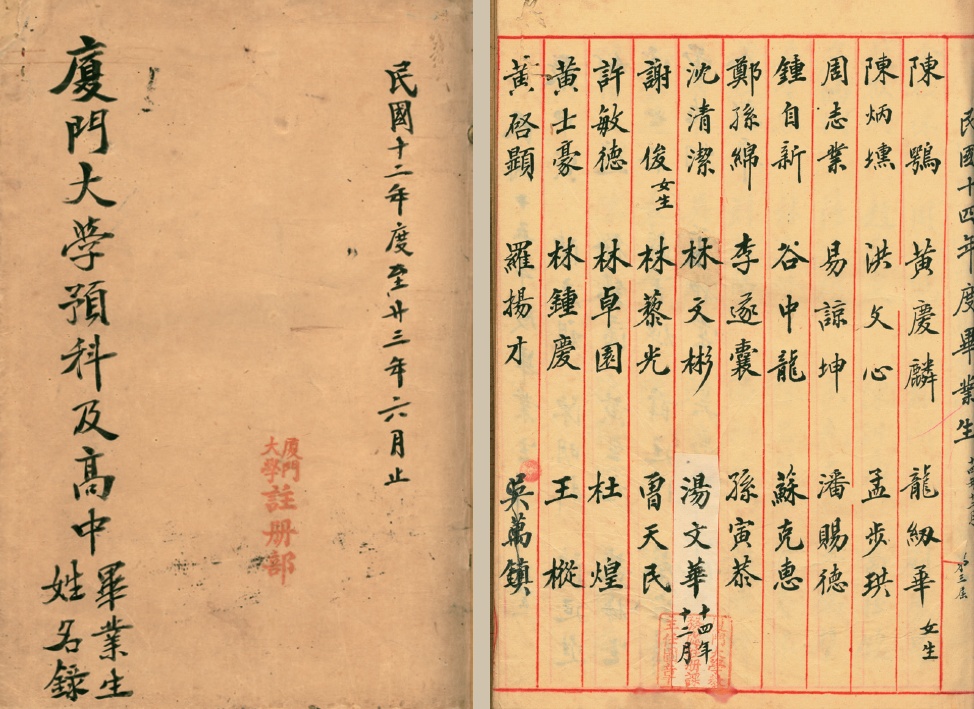 民國十二年度至廿三年六月止
廈門大學預科及高中畢業生姓名錄
廈門大學註册部
民國十四年度畢業生
第三屆
陳鶚 黃慶麟 龍級華 女生
陳炳壎 洪文心 孟步珙
周志業 易諒坤 潘賜德
鍾自新 谷中龍 蘇克惠
鄭孫綿 李遂囊 孫寅恭
沈清潔 林文彬 湯文華 十四年十二月
謝俊 女生 林藜光 曾天民
許敏德 林卓園 杜煌
黃士豪 林鍾慶 王樅
黃啓顯 羅揚才 吳萬鎮